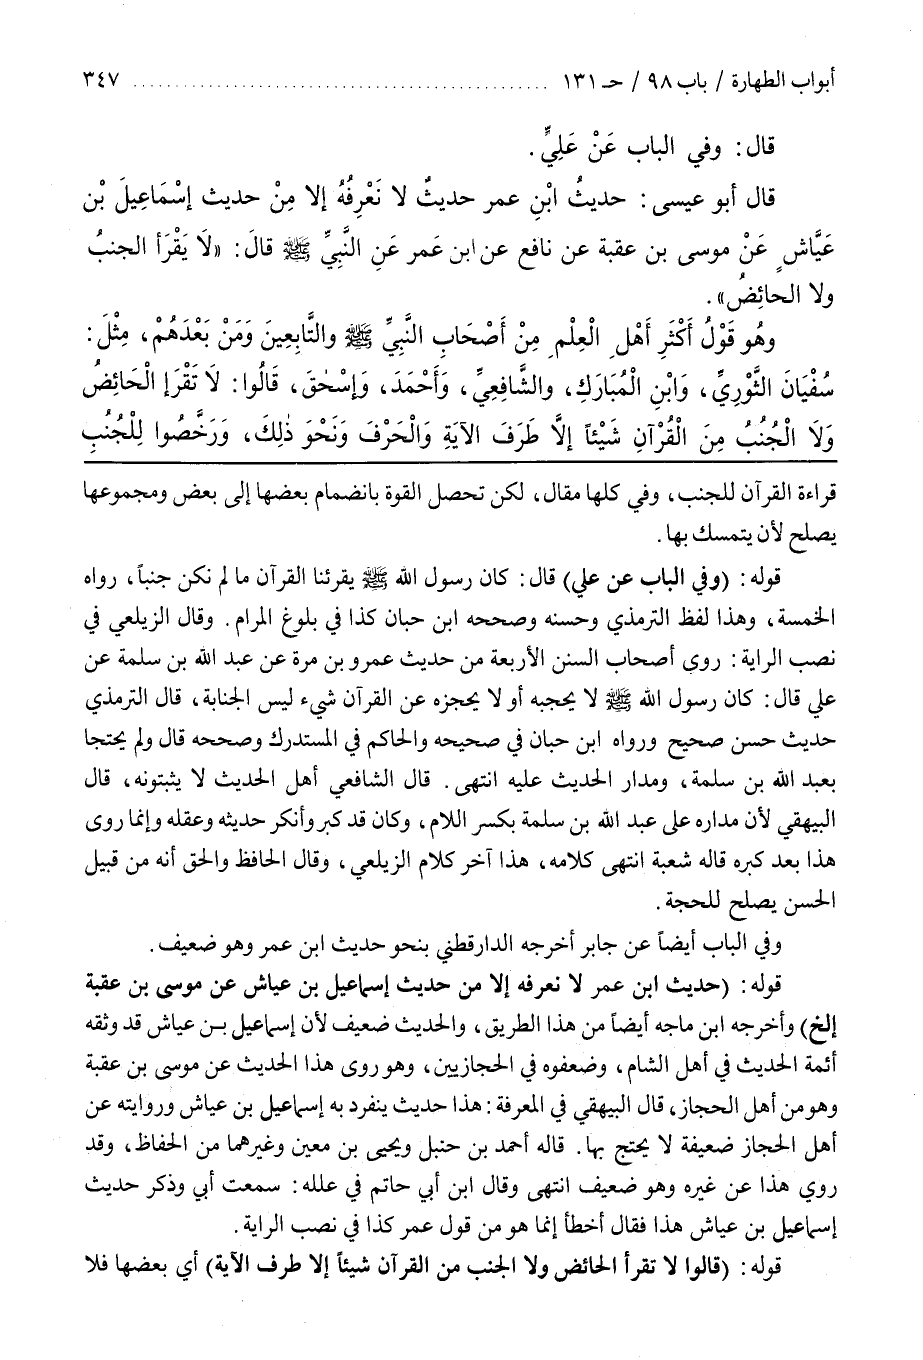 أبواب الطهارة / باب ٩٨ / حـ ١٣١ ................................................ ٣٤٧
قال: وفي الباب عَنْ عَلِيٍّ.
قال أبو عيسى: حديثُ ابْنِ عمر حديثٌ لا نَعْرِفُهُ إلا مِنْ حديث إسْمَاعِيلَ بْنِ
عَيَّاشٍ عَنْ موسى بن عقبة عن نافع عن ابن عمر عَنِ النَّبِيِّ ﷺ قالَ: «لَا يَقْرَأ الجنبُ
ولا الحائِضُ».
وهُو قَوْلُ أكْثَرِ أهْلِ الْعِلْمِ مِنْ أصْحَابِ النَّبِيِّ ﷺ والتَّابِعِينَ وَمَنْ بَعْدَهُمْ، مِثْلَ:
سُفْيَانَ الثَّوْرِيِّ، وَابْنِ الْمُبَارَكِ، والشَّافِعِيِّ، وَأحْمَدَ، وَإسْحٰقَ، قَالُوا: لَا تَقْرَإ الْحَائِضُ
وَلَا الْجُنُبُ مِنَ الْقُرْآنِ شَيْئاً إلَّا طَرَفَ الآيَةِ وَالْحَرْفَ وَنَحْوَ ذٰلِكَ، وَرَخَّصُوا لِلْجُنُبِ
قراءة القرآن للجنب، وفي كلها مقال، لكن تحصل القوة بانضمام بعضها إلى بعض ومجموعها
يصلح لأن يتمسك بها.
قوله: (وفي الباب عن علي) قال: كان رسول الله ﷺ يقرئنا القرآن ما لم نكن جنباً، رواه
الخمسة، وهذا لفظ الترمذي وحسنه وصححه ابن حبان كذا في بلوغ المرام. وقال الزيلعي في
نصب الراية: روى أصحاب السنن الأربعة من حديث عمرو بن مرة عن عبد الله بن سلمة عن
علي قال: كان رسول الله ﷺ لا يحجبه أو لا يحجزه عن القرآن شيء ليس الجنابة، قال الترمذي
حديث حسن صحيح ورواه ابن حبان في صحيحه والحاكم في المستدرك وصححه قال ولم يحتجا
بعبد الله بن سلمة، ومدار الحديث عليه انتهى. قال الشافعي أهل الحديث لا يثبتونه، قال
البيهقي لأن مداره على عبد الله بن سلمة بكسر اللام، وكان قد كبر وأنكر حديثه وعقله وإنما روى
هذا بعد كبره قاله شعبة انتهى كلامه، هذا آخر كلام الزيلعي، وقال الحافظ والحق أنه من قبيل
الحسن يصلح للحجة.
وفي الباب أيضاً عن جابر أخرجه الدارقطني بنحو حديث ابن عمر وهو ضعيف.
قوله: (حديث ابن عمر لا نعرفه إلا من حديث إسماعيل بن عياش عن موسى بن عقبة
إلخ) وأخرجه ابن ماجه أيضاً من هذا الطريق، والحديث ضعيف لأن إسماعيل بـن عياش قد وثقه
أئمة الحديث في أهل الشام، وضعفوه في الحجازيين، وهو روى هذا الحديث عن موسى بن عقبة
وهو من أهل الحجاز، قال البيهقي في المعرفة: هذا حديث ينفرد به إسماعيل بن عياش وروايته عن
أهل الحجاز ضعيفة لا يحتج بها. قاله أحمد بن حنبل ويحيى بن معين وغيرهما من الحفاظ، وقد
روي هذا عن غيره وهو ضعيف انتهى وقال ابن أبي حاتم في علله: سمعت أبي وذكر حديث
إسماعيل بن عياش هذا فقال أخطأ إنما هو من قول عمر كذا في نصب الراية.
قوله: (قالوا لا تقرأ الحائض ولا الجنب من القرآن شيئاً إلا طرف الآية) أي بعضها فلا